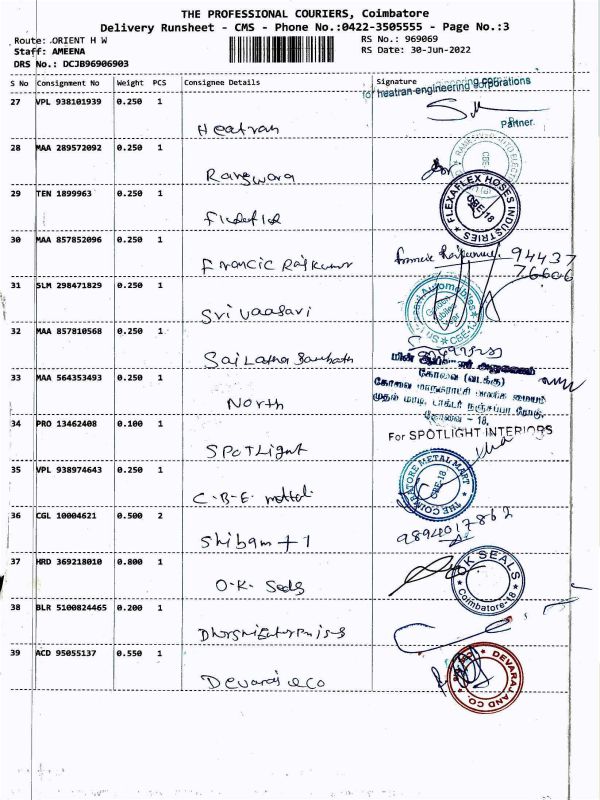 THE PROFESSIONAL COURIERS, Coimbatore
Delivery Runsheet - CMS - Phone No.:0422-3505555 - Page No.:3
Route: ORIENT H W
RS No.: 969069
Staff: AMEENA
RS Date: 30-Jun-2022
DRS No.: DCJB96906903
S No Consignment No Weight PCS Consignee Details Signature
for heatran engineering corporations
27 VPL 938101939 0.250 1
Partner.
Heatran
28 MAA 289572092 0.250 1
CBE
Rangwara
29 TEN 1899963 0.250 1
FLEXAFLEX HOSES INDUSTRIES
CBE-18
30 MAA 857852096 0.250 1
Francic Rajkumar
94437
76606
31 SLM 298471829 0.250 1
Automobiles
CBE-1
Sri Vaasavi
32 MAA 857810568 0.250 1
Sai Latha
33 MAA 564353493 0.250 1
கோவை (வடக்கு)
North
34 PRO 13462408 0.100 1
For SPOTLIGHT INTERIORS
SPOTLight
35 VPL 938974643 0.250 1
THE COIMBATORE METAL MART
CBE-18
C.B.E. mettal
36 CGL 10004621 0.500 2
9894017862
Shibam + 1
37 HRD 369218010 0.800 1
OK SEALS
Coimbatore-18
O.K. Seals
38 BLR 5100824465 0.200 1
39 ACD 95055137 0.550 1
DEVARAJ AND CO.
Devaraj & co